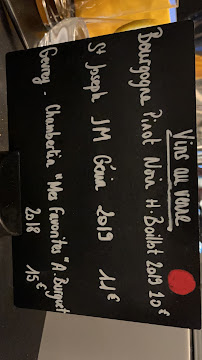 Vins au verre
Bourgogne Pinot Noir H. Boillot 2019 10€
St Joseph JM Gérin 2019 11€
Gevrey - Chambertin "Mes Favorites" A. Burguet
2018 15€